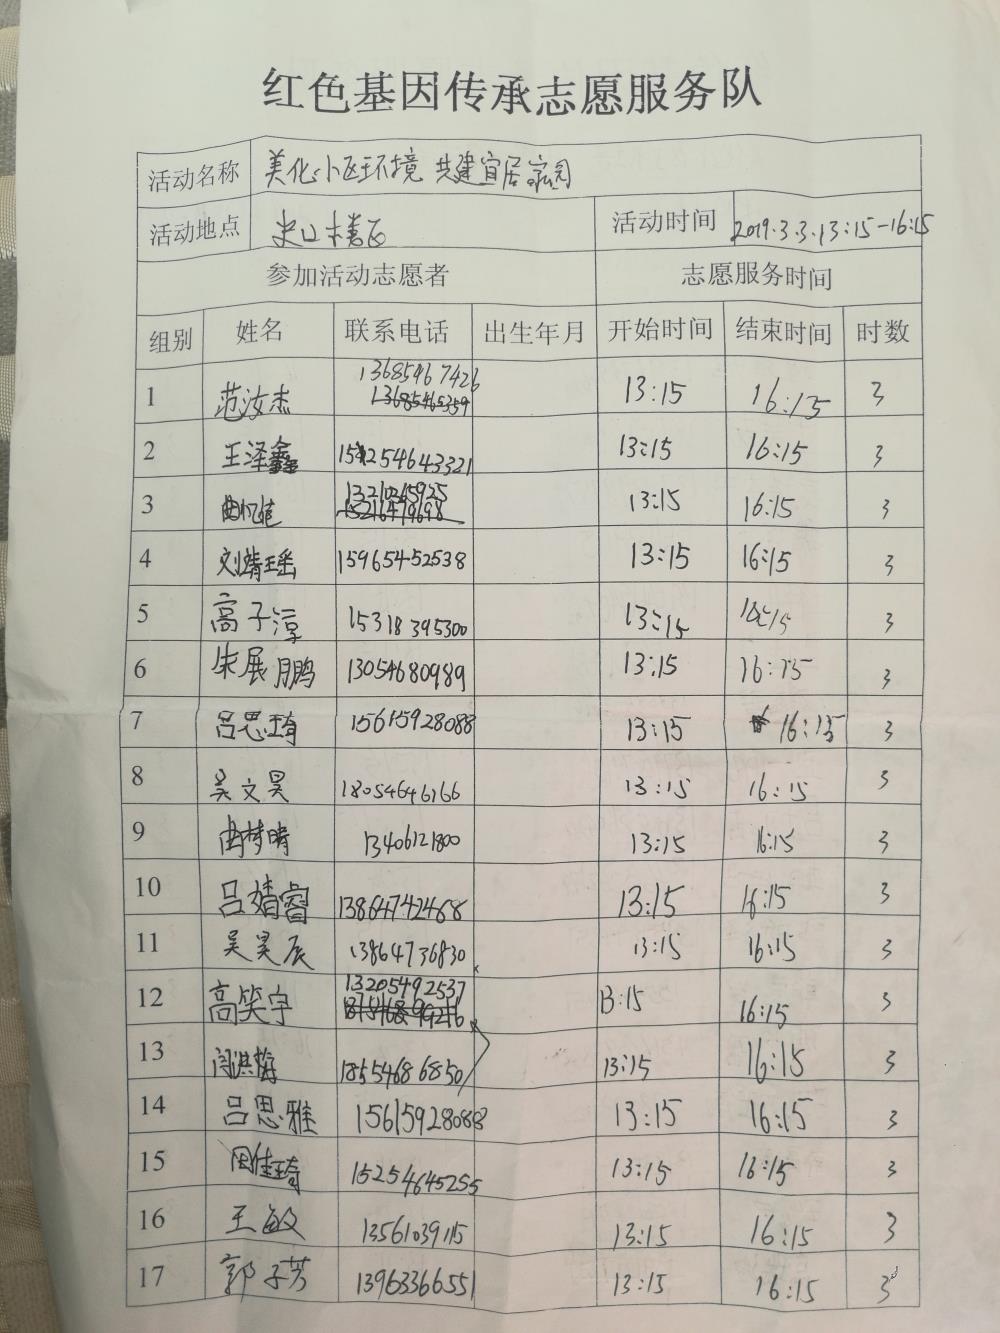 红色基因传承志愿服务队
活动名称 美化小区环境 共建宜居家园
活动地点 史口 活动时间 2019.3.3.13:15-16:15
参加活动志愿者 志愿服务时间
组别 姓名 联系电话 出生年月 开始时间 结束时间 时数
13685467426
1 范汝杰 13685465359 13:15 16:15 3
2 王泽鑫 13:15 16:15 3
13210365925
3 曲忆佳 13:15 16:15 3
4 刘婧瑶 15965452538 13:15 16:15 3
5 高子淳 15318395300 13:15 16:15 3
6 朱展鹏 13054680989 13:15 16:15 3
7 吕思琦 15615928088 13:15 16:15 3
8 吴文昊 18054646166 13:15 16:15 3
9 曲梦晴 13406121800 13:15 16:15 3
10 吕婧睿 13864742468 13:15 16:15 3
11 吴昊辰 13864736830 13:15 16:15 3
13205492537
12 高笑宇 13:15 16:15 3
13 闫洪梅 18554686850 13:15 16:15 3
14 吕思雅 15615928088 13:15 16:15 3
15 田佳琦 15254645255 13:15 16:15 3
16 王敏 13561039115 13:15 16:15 3
17 郭子芳 13963366551 13:15 16:15 3